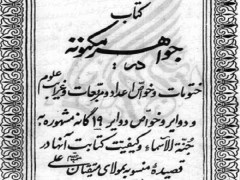 کتاب
جواهر مکنونه
در
ختومات و خواص اعداد و مربعات و غیر علوم
و دوایر و خواص دوایر ۱۹ کانه مشهوره به
جنة الاسماء و کیفیت کتابت آنها در
قصیدهٔ منسوبه بمولای متقیان علی